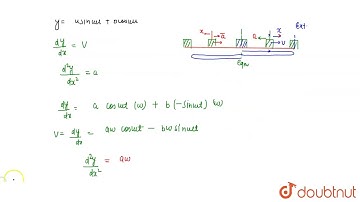 y = asinωt + bcosωt
dy/dx = V
d²y/dx² = a
dy/dx = a cosωt (ω) + b (-sinωt) ω
V = dy/dx = aω cosωt - bω sinωt
d²y/dx² = aω
x a a x Ext
v
Eqn
doubtnut